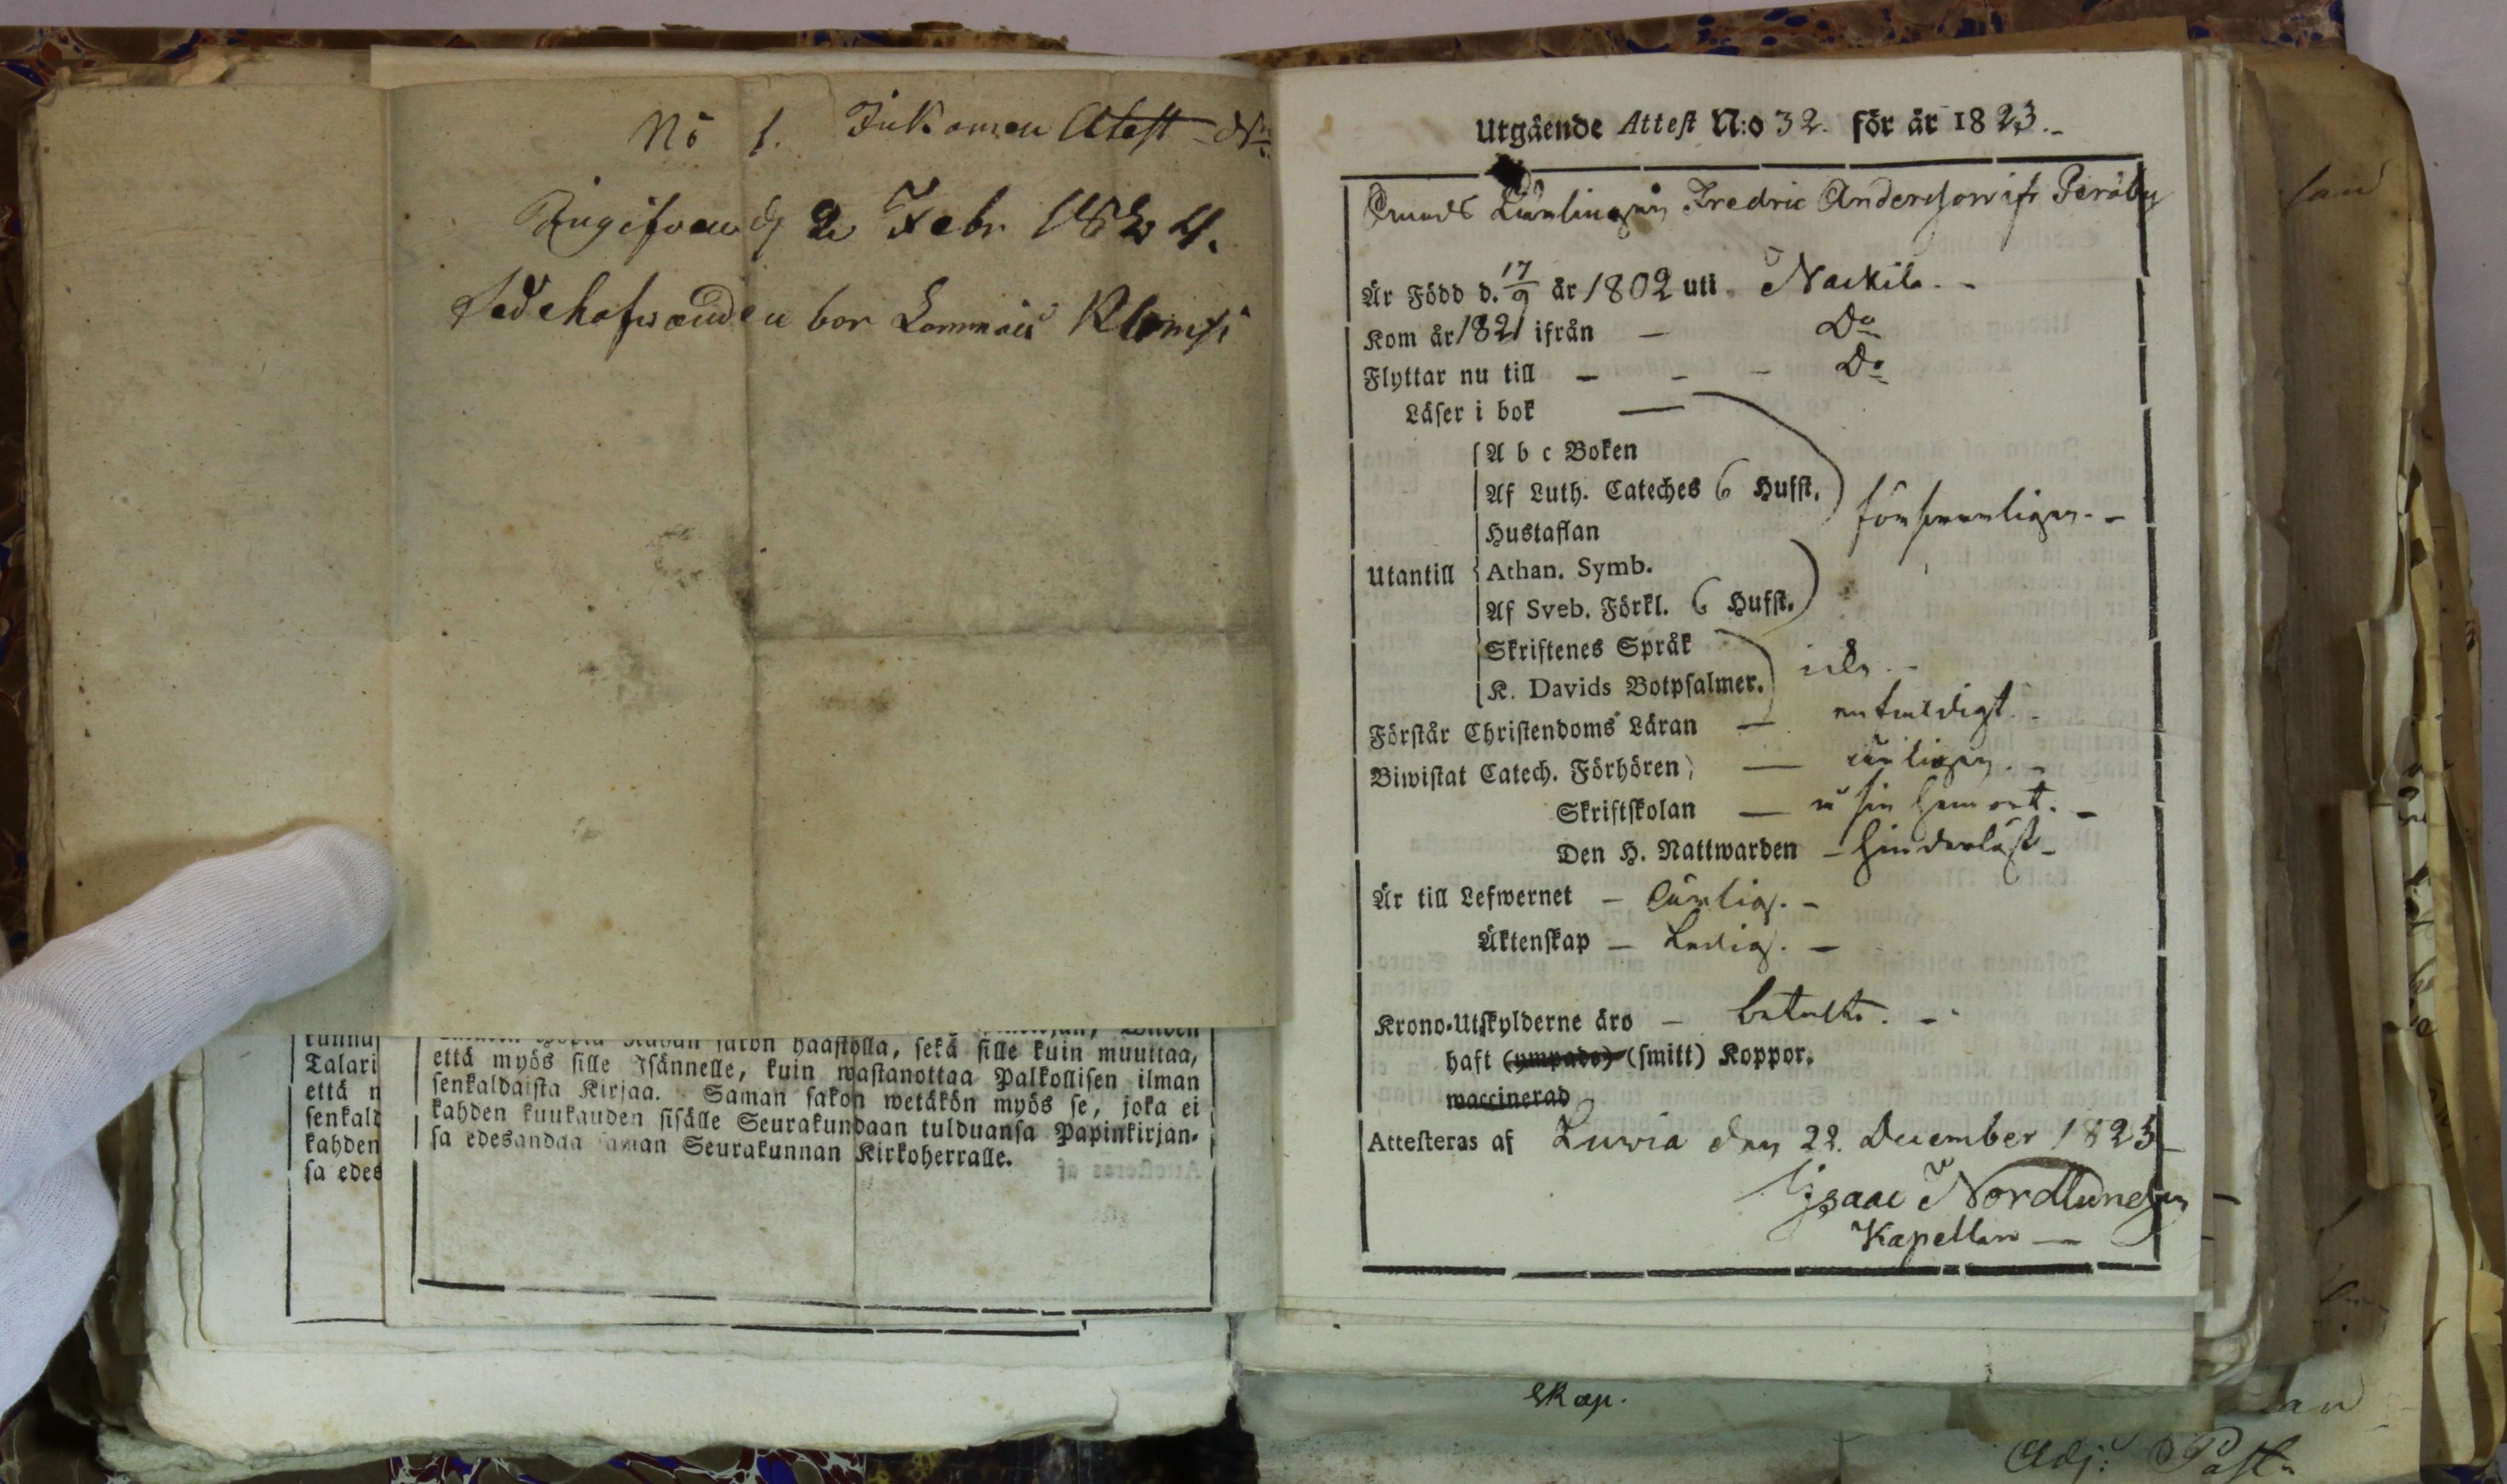 No 1. Inkomen Atest
Ingifven d 2 Febr 1824.
bor Lammais Klomsi
kunna
Talari
että n
senkald
kahden
sa edes
haastolla, sekä sille kuin muuttaa,
että myös sille Isännelle, kuin wastanottaa Palkollisen ilman
senkaldaista Kirjaa. Saman sakon wetäkön myös se, joka ei
kahden kuukauden sisälle Seurakundaan tulduansa Papinkirjan-
sa edesandaa saman Seurakunnan Kirkoherralle.
Utgående Attest N:o 32. för år 1823.
Lärlingen Fredric Andersson ifr Peräby
Är Född d. 17/9 år 1802 uti Nackila.
Kom år 1821 ifrån — Do
Flyttar nu till — — — Do
Läser i bok —
A b c Boken
Af Luth. Cateches 6 Hufst.
försvarligen.
Hustaflan
Utantill
Athan. Symb.
Af Sveb. Förkl. 6 Hufst.
Skriftenes Språk
icke.
K. Davids Botpsalmer.
Förstår Christendoms Läran — enfaldigt.
Biwistat Catech. Förhören — årligen.
Skriftskolan — å sin hemort.
Den H. Nattwarden — hinderlöst
Är till Lefwernet — ärlig.
Äktenskap — Ledig.
Krono-Utskylderne äro — betalte.
haft (ympade) (smitt) Koppor.
waccinerad
Attesteras af Luvia den 22. December 1823
Isaac Nordlund
Kapellan
skap.
Adj: Past.